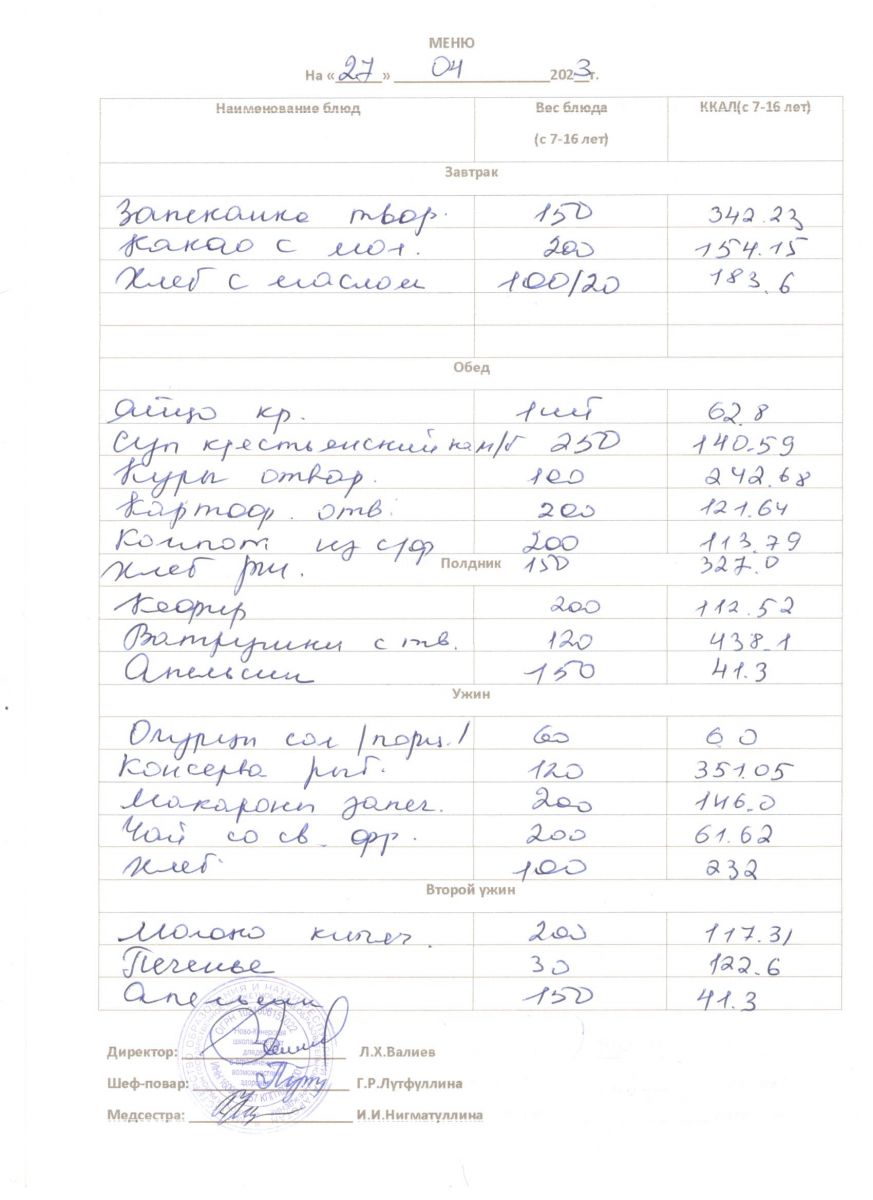 МЕНЮ
На «27» 04 2023г.
Наименование блюд Вес блюда (с 7-16 лет) ККАЛ(с 7-16 лет)
Завтрак
Запеканка твор. 150 342.23
Какао с мол. 200 154.15
Хлеб с маслом 100/20 183.6
Обед
Яйцо кр. 1шт 62.8
Суп крестьянский на м/б 250 140.59
Куры отвар. 100 242.68
Картоф. отв. 200 121.64
Компот из с/ф 200 113.79
Хлеб рж. 150 327.0
Полдник
Кефир 200 112.52
Ватрушки с тв. 120 438.1
Апельсин 150 41.3
Ужин
Огурцы сол /порц./ 60 60
Консерва рыб. 120 351.05
Макароны запеч. 200 146.0
Чай со св. фр. 200 61.62
Хлеб 100 232
Второй ужин
Молоко кипяч. 200 117.31
Печенье 30 122.6
Апельсин 150 41.3
Директор: Л.Х.Валиев
Шеф-повар: Г.Р.Лутфуллина
Медсестра: И.И.Нигматуллина